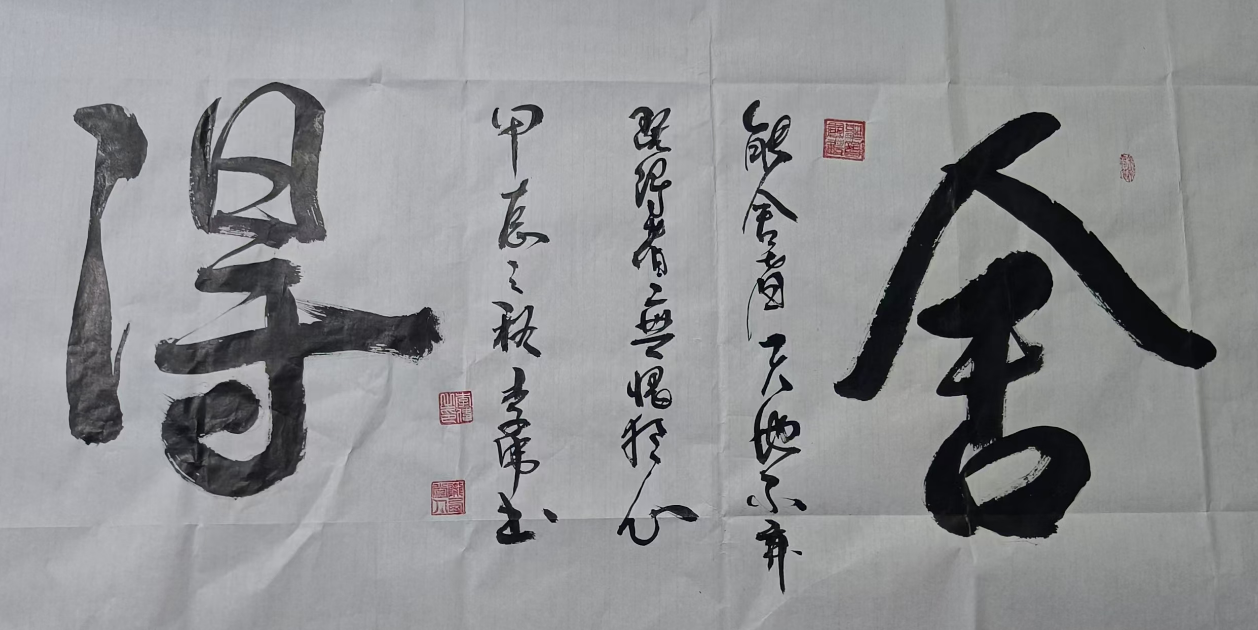 舍
能舍者天地不弃
得者無愧於心
甲辰之秋李书
得